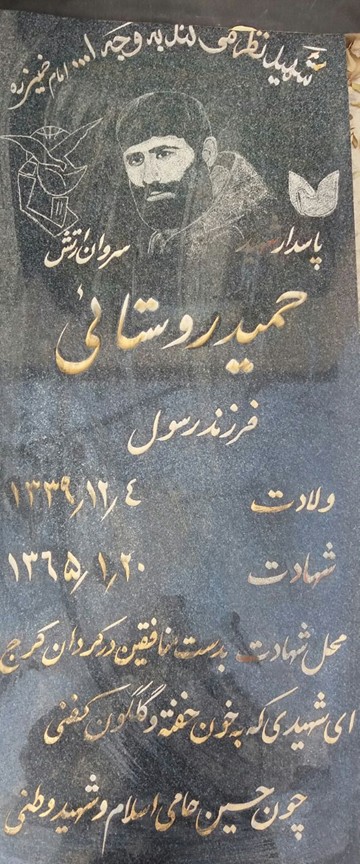 شهید نظر می‌کند به وجه ا... امام خمینی ره
پاسدار شهید سروان ارتش
حمید روستائی
فرزند رسول
ولادت ۱۳۳۹/۱۲/۴
شهادت ۱۳۶۵/۱/۲۰
محل شهادت بدست منافقین در کردان کرج
ای شهیدی که به خون خفته و گلگون کفنی
چون حسین حامی اسلام و شهید وطنی